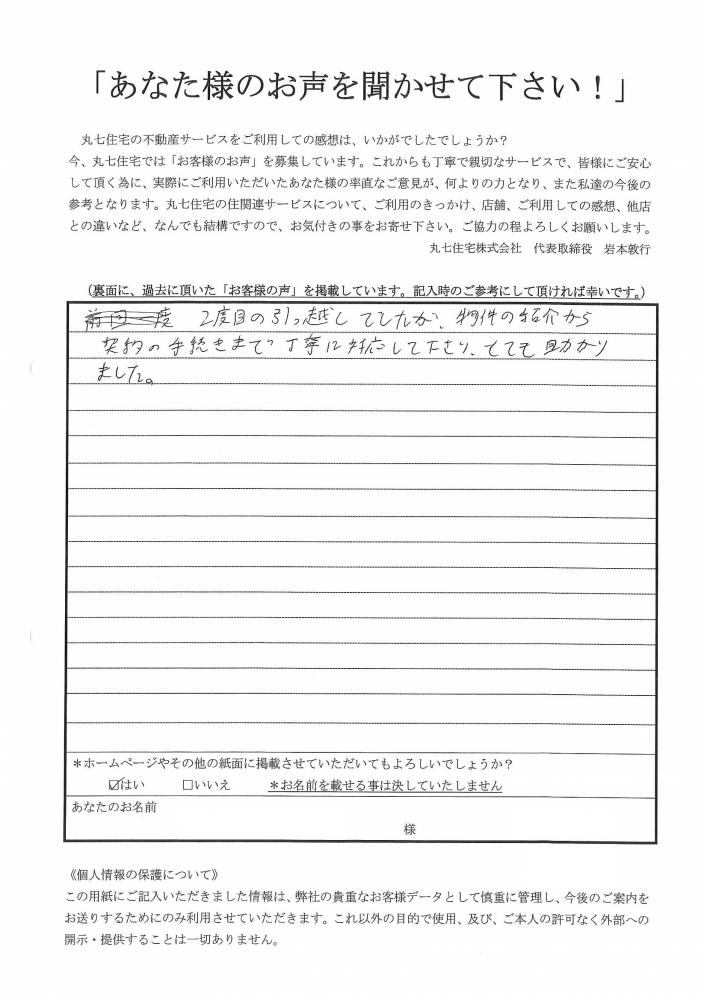 「あなた様のお声を聞かせて下さい！」
丸七住宅の不動産サービスをご利用しての感想は、いかがでしたでしょうか？
今、丸七住宅では「お客様のお声」を募集しています。これからも丁寧で親切なサービスで、皆様にご安心
して頂く為に、実際にご利用いただいたあなた様の率直なご意見が、何よりの力となり、また私達の今後の
参考となります。丸七住宅の住関連サービスについて、ご利用のきっかけ、店舗、ご利用しての感想、他店
との違いなど、なんでも結構ですので、お気付きの事をお寄せ下さい。ご協力の程よろしくお願いします。
丸七住宅株式会社　代表取締役　岩本敦行
（裏面に、過去に頂いた「お客様の声」を掲載しています。記入時のご参考にして頂ければ幸いです。）
2度目の引っ越しでしたが、物件の紹介から
契約の手続きまで丁寧に対応して下さり、とても助かり
ました。
＊ホームページやその他の紙面に掲載させていただいてもよろしいでしょうか？
☑はい　□いいえ　＊お名前を載せる事は決していたしません
あなたのお名前
様
《個人情報の保護について》
この用紙にご記入いただきました情報は、弊社の貴重なお客様データとして慎重に管理し、今後のご案内を
お送りするためにのみ利用させていただきます。これ以外の目的で使用、及び、ご本人の許可なく外部への
開示・提供することは一切ありません。